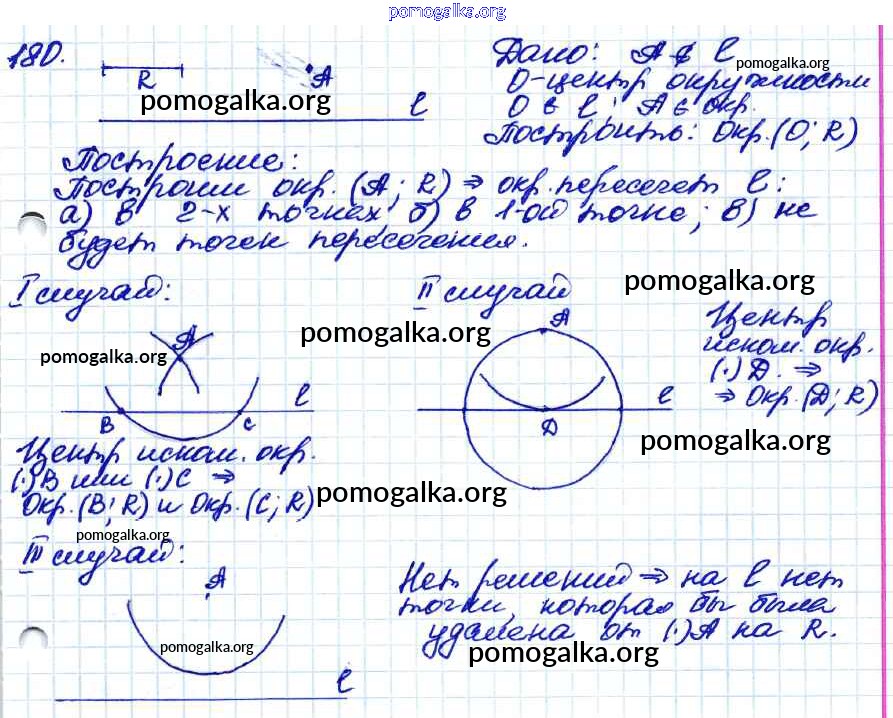 pomogalka.org
180.
R
A
l
pomogalka.org
Дано: A ∉ l
pomogalka.org
O-центр окружности
O ∈ l; A ∈ окр.
Построить: Окр.(O; R)
Построение:
Построим окр. (A; R) ⇒ окр. пересечет l:
а) в 2-х точках б) в 1-ой точке; в) не
будет точек пересечения.
I случай:
pomogalka.org
A
pomogalka.org
l
B
C
Центр иском. окр.
(·)B или (·)C ⇒
Окр.(B; R) и Окр.(C; R)
pomogalka.org
II случай
pomogalka.org
A
l
D
Центр
иском. окр.
(·)D. ⇒
⇒ Окр.(D; R)
pomogalka.org
pomogalka.org
III случай:
A
pomogalka.org
l
Нет решений ⇒ на l нет
точки, которая бы была
удалена от (·)A на R.
pomogalka.org